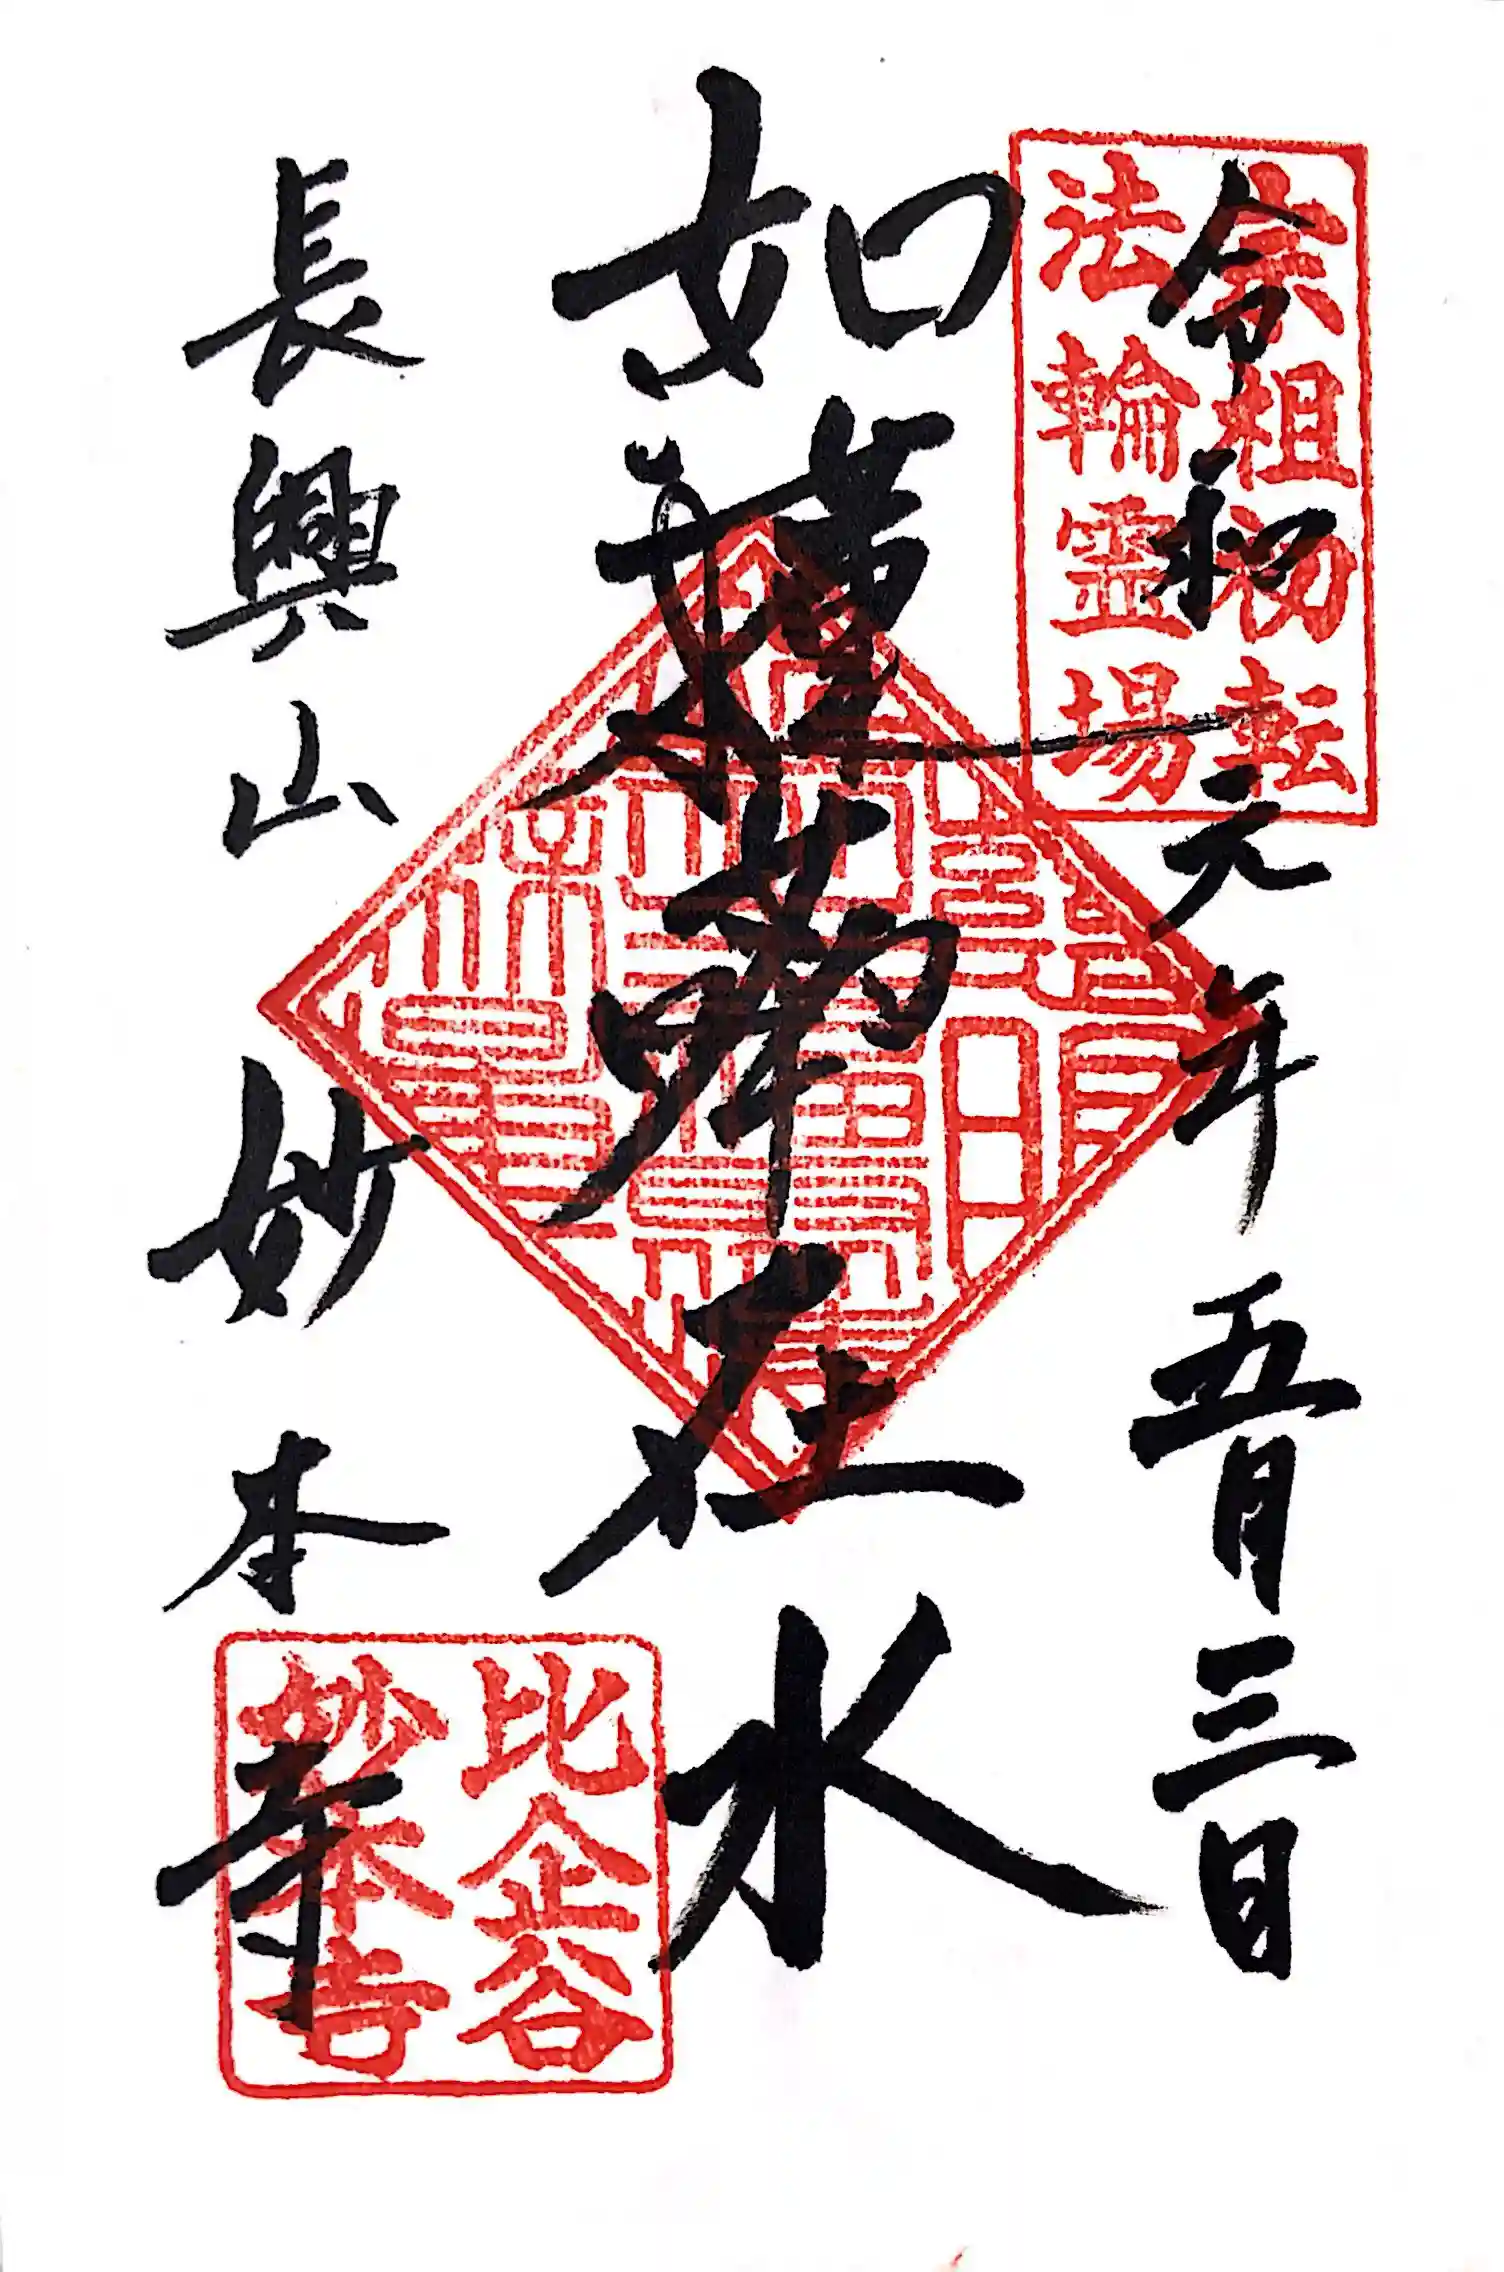 宗祖初転
法輪霊場
令和元年五月三日
如蓮華在水
長興山 妙本寺
比企谷
妙本寺